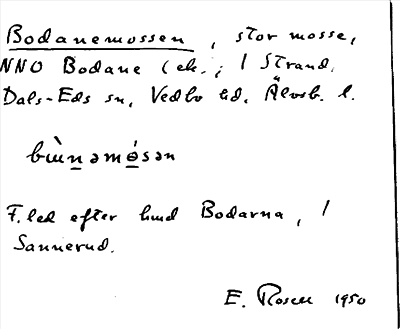 Bodanemossen, stor mosse,
NNO Bodane (ek.; 1 Strand,
Dals-Eds sn, Vedbo hd, Älvsb. l.
bɯ̀n̲əmó̲sən
F. led efter hmd Bodarna, 1
Sannerud.
E. Rosell 1950